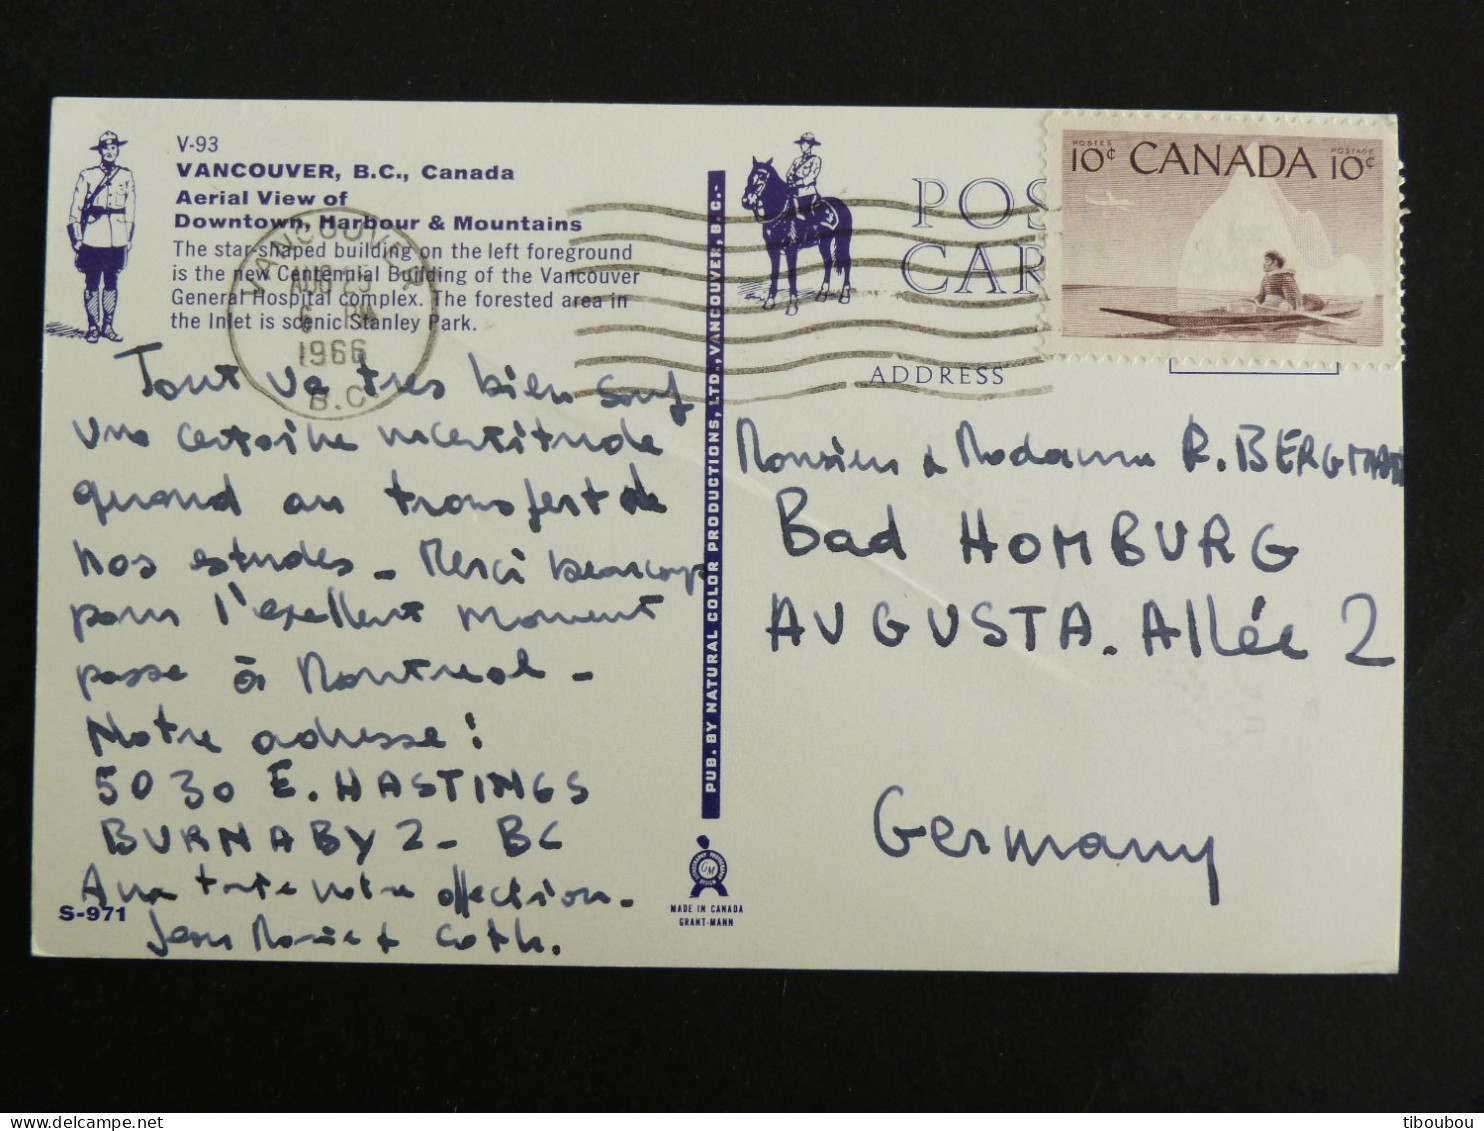 V-93
VANCOUVER, B.C., Canada
Aerial View of
Downtown, Harbour & Mountains
The star-shaped building on the left foreground
is the new Centennial Building of the Vancouver
General Hospital complex. The forested area in
the Inlet is scenic Stanley Park.
VANCOUVER
AUG 23
6 PM
1966
B.C.
Tout va tres bien sauf
une certaine incertitude
quand au transfert de
nos etudes - Merci beaucoup
pour l'exellent moment
passe à Montreal -
Notre adresse :
5030 E. HASTINGS
BURNABY 2 - BC
A vous toute notre affection -
Jean Marie et Cath.
S-971
PUB. BY NATURAL COLOR PRODUCTIONS, LTD., VANCOUVER, B.C.
GM
MADE IN CANADA
GRANT-MANN
POS
CAR
ADDRESS
POSTES POSTAGE
10¢ CANADA 10¢
Monsieur & Madame R. BERGMAN
Bad HOMBURG
AUGUSTA. Allée 2
Germany
tiboubou